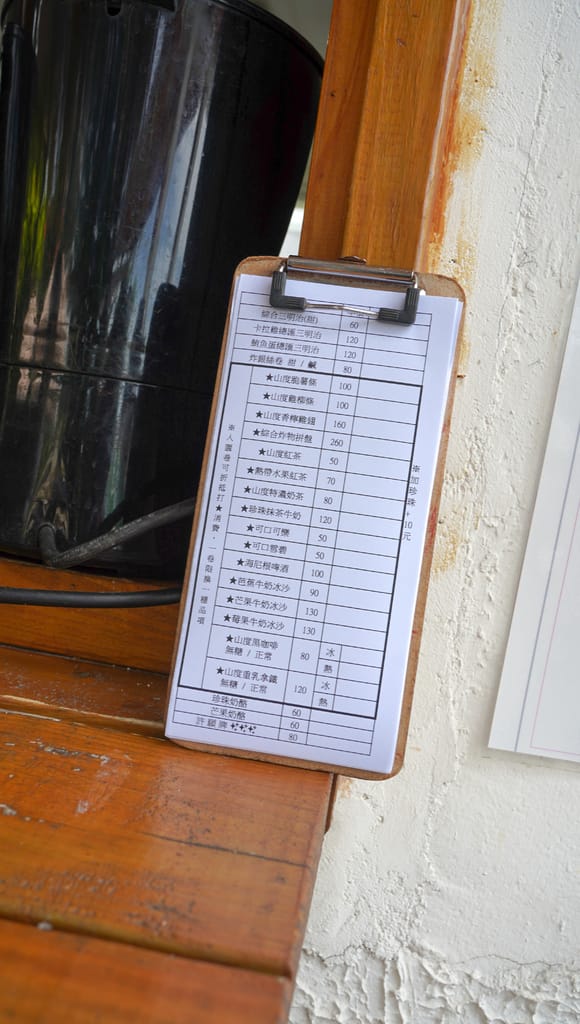 綜合三明治(甜) 60
卡拉雞總匯三明治 120
鮪魚蛋總匯三明治 120
炸銀絲卷 甜 / 鹹 80
★山度脆薯條 100
★山度雞柳條 100
★山度香檸雞翅 160
★綜合炸物拼盤 260
★山度紅茶 50
★熱帶水果紅茶 70
★山度特濃奶茶 80
★珍珠抹茶牛奶 120
★可口可樂 50
★可口雪碧 50
★海尼根啤酒 100
★芭蕉牛奶冰沙 90
★芒果牛奶冰沙 130
★莓果牛奶冰沙 130
★山度黑咖啡 80 冰
無糖 / 正常 熱
★山度重乳拿鐵 120 冰
無糖 / 正常 熱
珍珠奶酪 60
芒果奶酪 60
許願牌 80
※入園卷可折抵打★消費,一卷限換一種品項
※加珍珠+10元